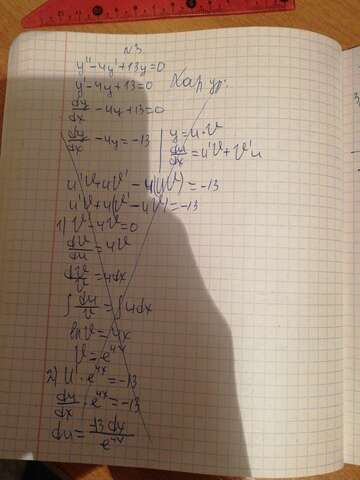 N3
y'' - 4y' + 13y = 0
y' - 4y + 13 = 0 Хар ур:
dy/dx - 4y + 13 = 0
dy/dx - 4y = -13 | y = u·v
dy/dx = u'v + v'u
u'v + uv' - 4(uv) = -13
u'v + u(v' - 4v) = -13
1) v' - 4v = 0
dv/du = 4v
dv/v = 4dx
∫ du/v = ∫ 4dx
ln v = 4x
v = e^4x
2) u' · e^4x = -13
du/dx · e^4x = -13
du = 13 dy / e^4x